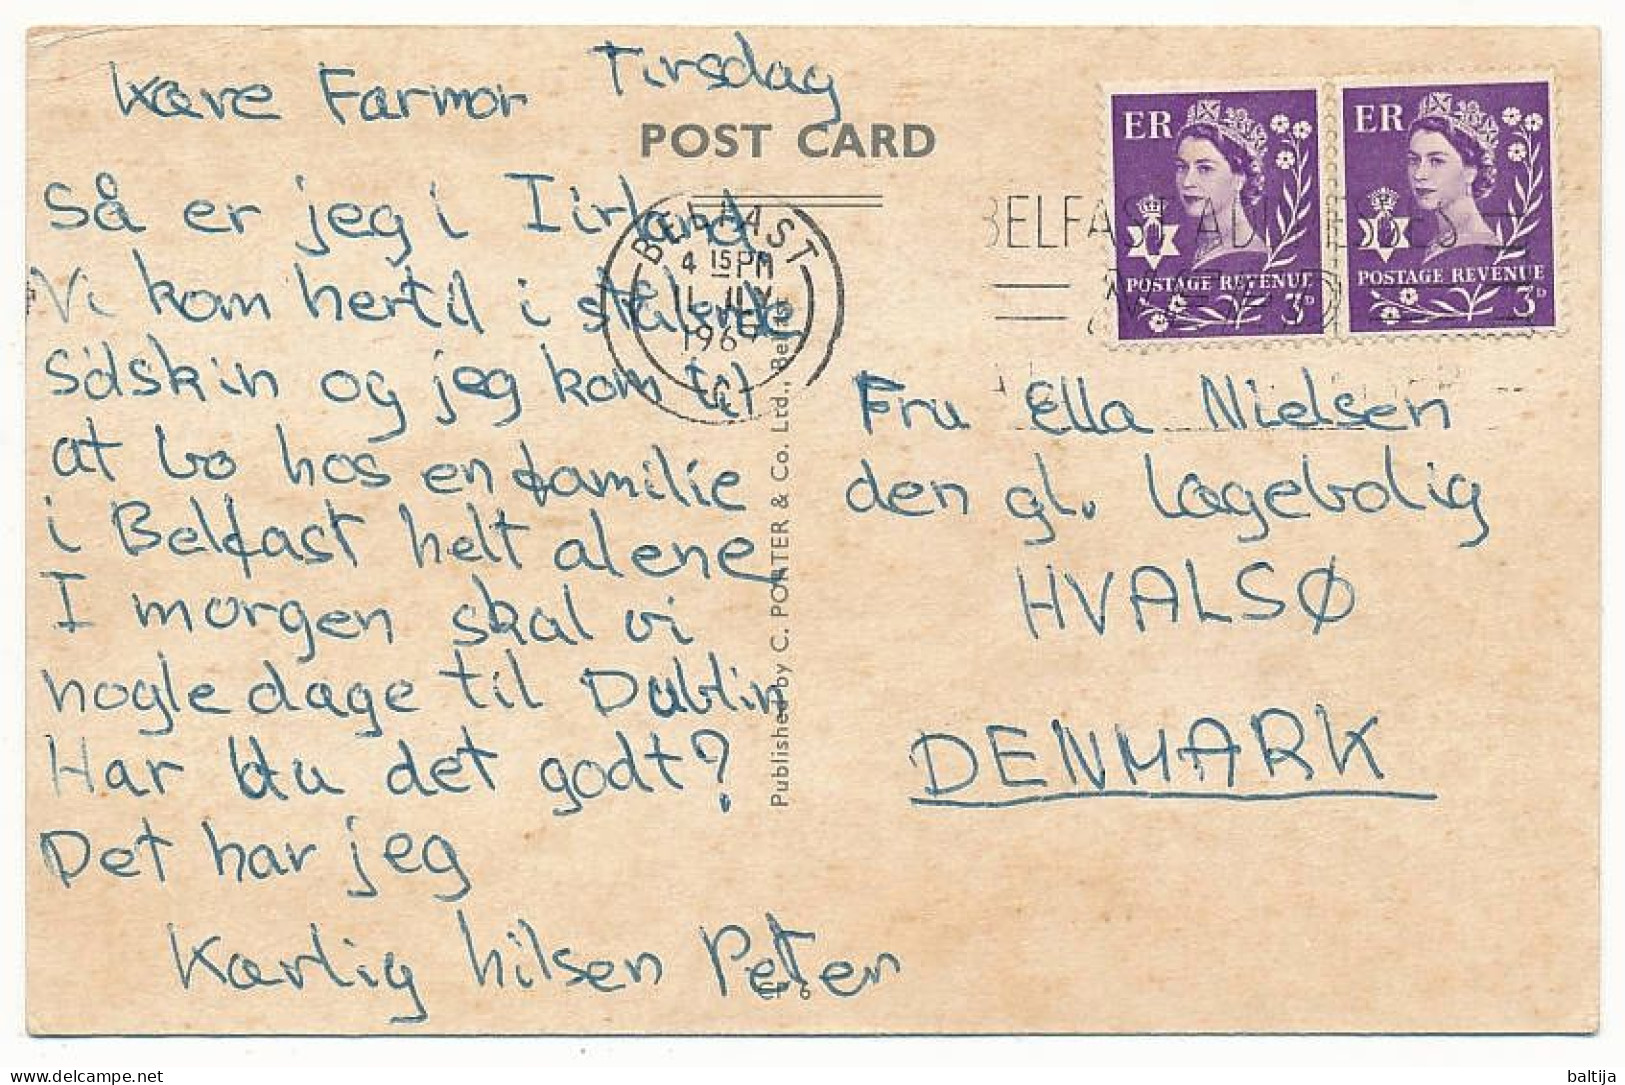 Kære Farmor Tirsdag
POST CARD
Så er jeg i Iirland
Vi kom hertil i strålende
Solskin og jeg kom til
at bo hos en familie
i Belfast helt alene
I morgen skal vi
nogle dage til Dublin
Har du det godt?
Det har jeg
Kærlig hilsen Peter
CP 6
BELFAST
4 15 PM
11 JLY
196
Published by C. PORTER & Co. Ltd., Belfast
BELFAST
ER
POSTAGE REVENUE
3D
ER
POSTAGE REVENUE
3D
Fru Ella Nielsen
den gl. Lægebolig
HVALSØ
DENMARK
baltija